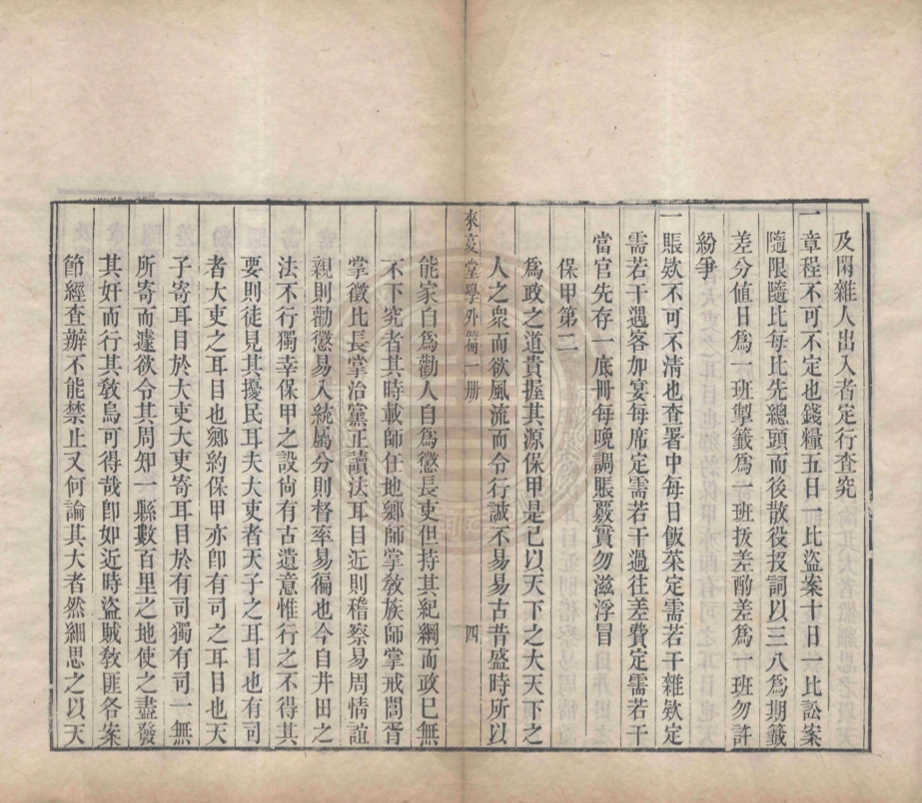 及閑雜人出入者定行查究
一章程不可不定也錢糧五日一比盜案十日一比訟案
隨限隨比每比先總頭而後散役投詞以三八爲期籤
差分值日爲一班掣籤爲一班拨差酌差爲一班勿許
紛爭
一賬欵不可不清也查署中每日飯菜定需若干雜欵定
需若干遇客加宴每席定需若干過往差費定需若干
當官先存一底冊每晚調賬覈實勿滋浮冒
保甲第二
爲政之道貴握其源保甲是已以天下之大天下之
人之衆而欲風流而令行誠不易易古昔盛時所以
來 堂學外篇一册
四
能家自爲勸人自爲懲長吏但持其紀綱而政已無
不下究者其時載師任地鄉師掌敎族師掌戒閭胥
掌徵比長掌治黨正讀法耳目近則稽察易周情誼
親則勸懲易入統屬分則督率易徧也今自井田之
法不行獨幸保甲之設尙有古遺意惟行之不得其
要則徒見其擾民耳夫大吏者天子之耳目也有司
者大吏之耳目也鄉約保甲亦卽有司之耳目也天
子寄耳目於大吏大吏寄耳目於有司獨有司一無
所寄而遽欲令其周知一縣數百里之地使之盡發
其奸而行其敎烏可得哉卽如近時盜賊敎匪各案
節經查辦不能禁止又何論其大者然細思之以天